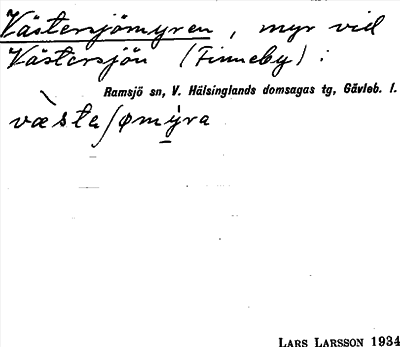 Västersjömyren, myr vid
Västersjön (Finneby) i
Ramsjö sn, V. Hälsinglands domsagas tg, Gävleb. l.
væ̀staʃømẏ̠ra
LARS LARSSON 1934